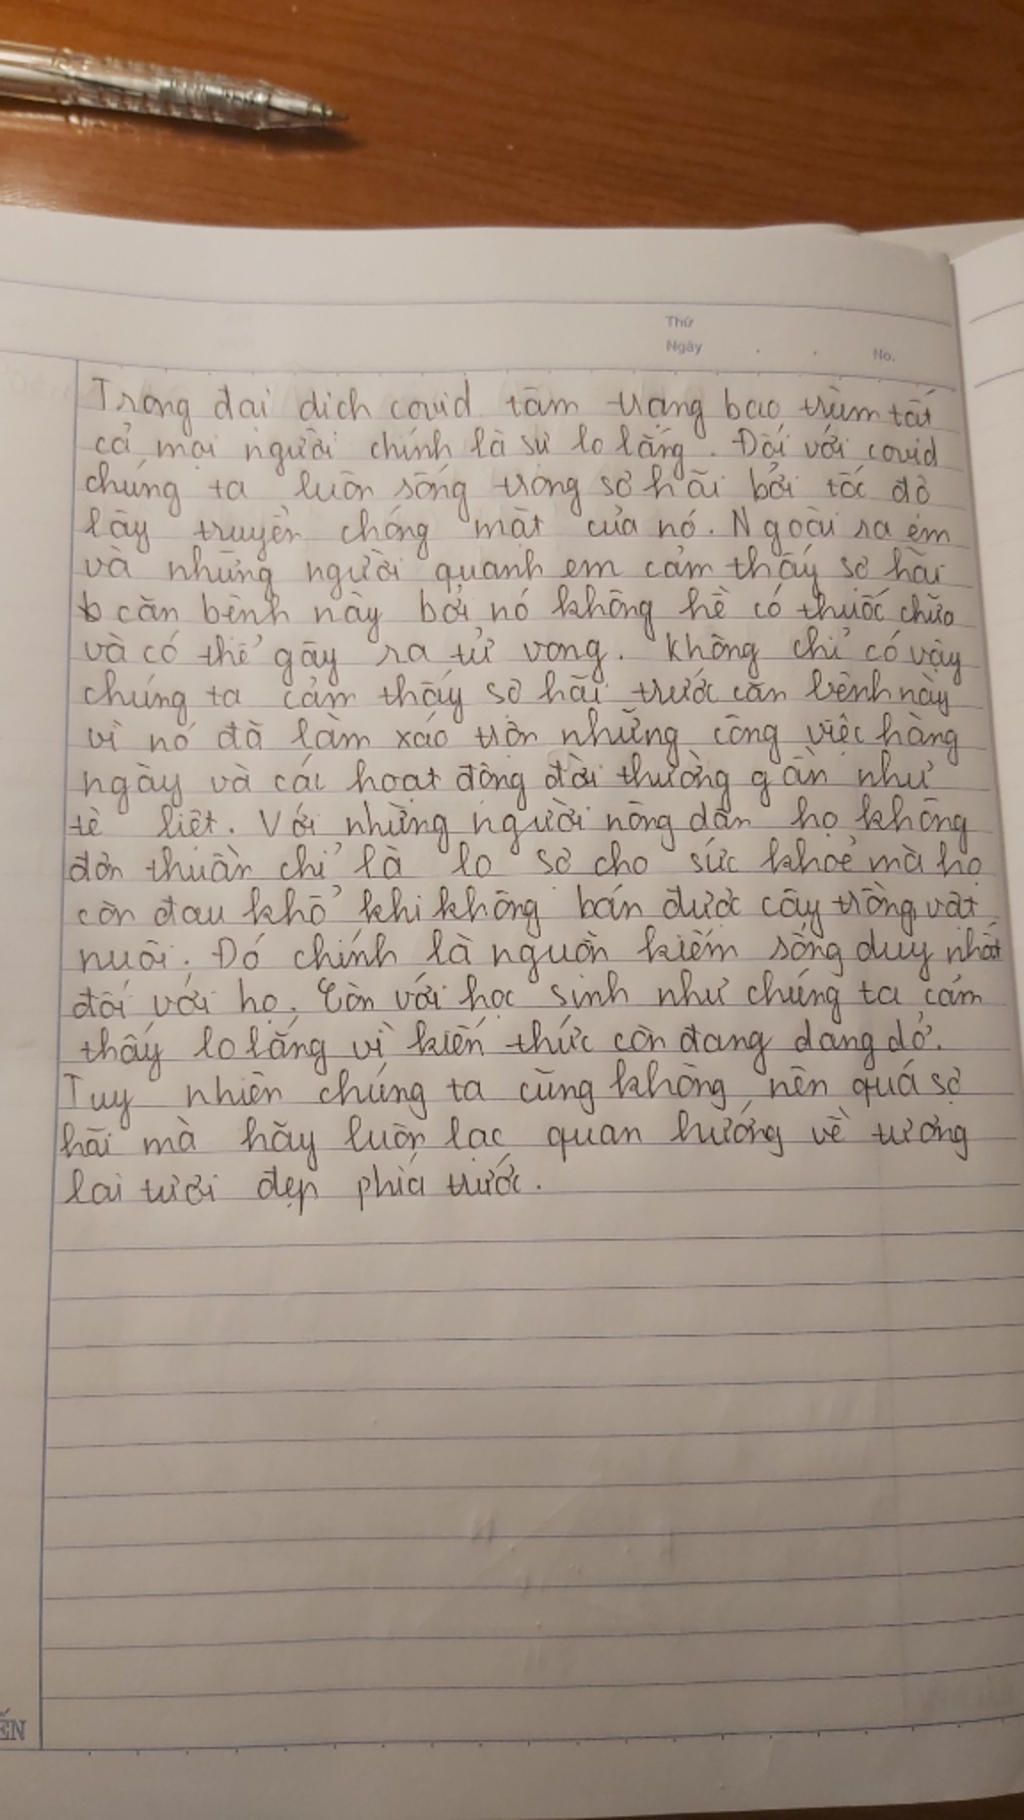 Thứ
Ngày . . No.
Trong đại dịch covid tâm trạng bao trùm tất
cả mọi người chính là sự lo lắng. Đối với covid
chúng ta luôn sống trong sợ hãi bởi tốc độ
lây truyền chóng mặt của nó. Ngoài ra em
và những người quanh em cảm thấy sợ hãi
căn bệnh này bởi nó không hề có thuốc chữa
và có thể gây ra tử vong. Không chỉ có vậy
chúng ta cảm thấy sợ hãi trước căn bệnh này
vì nó đã làm xáo trộn những công việc hàng
ngày và các hoạt động đời thường gần như
tê liệt. Với những người nông dân họ không
đơn thuần chỉ là lo sợ cho sức khoẻ mà họ
còn đau khổ khi không bán được cây trồng, vật
nuôi. Đó chính là nguồn kiếm sống duy nhất
đối với họ. Còn với học sinh như chúng ta cảm
thấy lo lắng vì kiến thức còn đang dang dở.
Tuy nhiên chúng ta cũng không nên quá sợ
hãi mà hãy luôn lạc quan hướng về tương
lai tươi đẹp phía trước.
ẾN